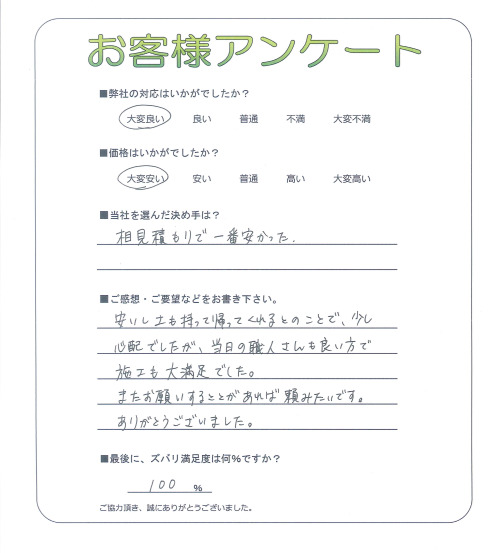 お客様アンケート
■弊社の対応はいかがでしたか？
大変良い 良い 普通 不満 大変不満
■価格はいかがでしたか？
大変安い 安い 普通 高い 大変高い
■当社を選んだ決め手は？
相見積もりで一番安かった.
■ご感想・ご要望などをお書き下さい。
安いし土も持って帰ってくれるとのことで、少し
心配でしたが、当日の職人さんも良い方で
施工も大満足でした。
またお願いすることがあれば頼みたいです。
ありがとうございました。
■最後に、ズバリ満足度は何%ですか？
100 %
ご協力頂き、誠にありがとうございました。